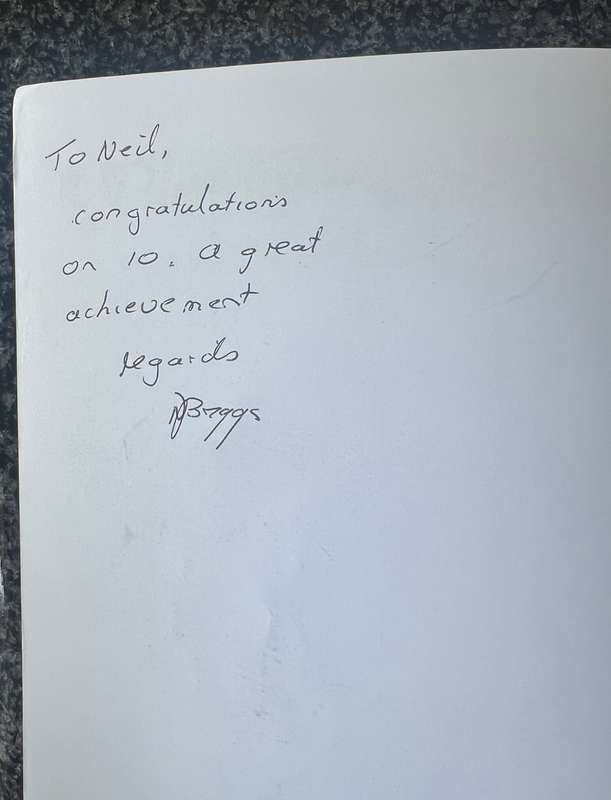 To Neil,
congratulations
on 10. a great
achievement
regards
Briggs